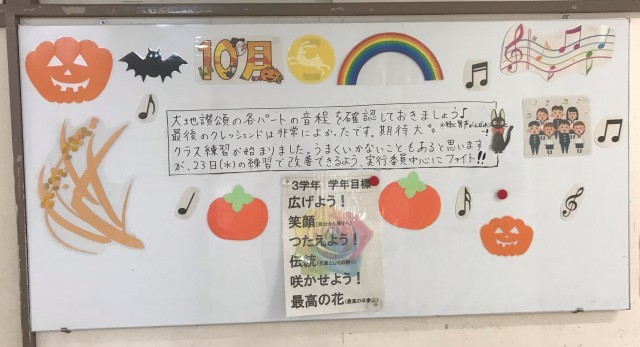 10月
大地讃頌の各パートの音程を確認しておきましょう♪
最後のクレッシェンドは非常によかったです。期待大。
クラス練習が始まりました。うまくいかないこともあると思います
が、23日(水)の練習で改善できるよう、実行委員中心にファイト!!
3学年 学年目標
広げよう!
笑顔
つたえよう!
伝統
咲かせよう!
最高の花(最高の卒業式)